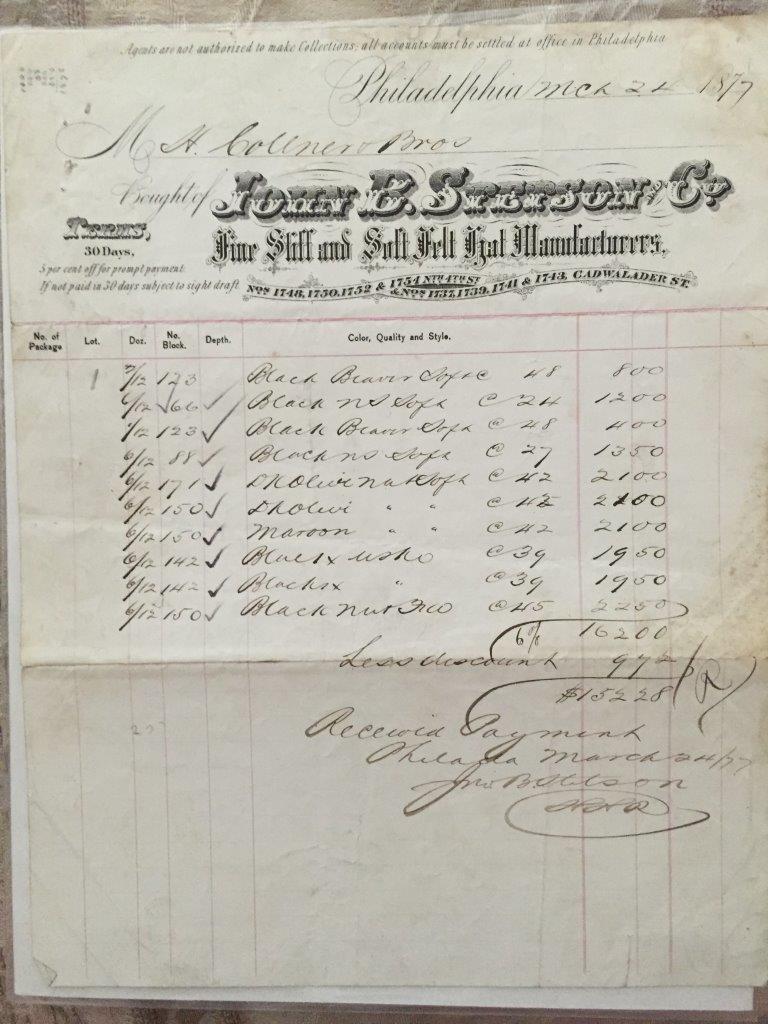 Agents are not authorized to make Collections; all accounts must be settled at office in Philadelphia
Philadelphia Mch 24 1877
M H. Bros
Bought of JOHN B. STETSON AND CO
Fine Stiff and Soft Felt Hat Manufacturers,
NOS 1748, 1750, 1752 & 1754 NTH 4TH ST
& NOS 1737, 1739, 1741 & 1743, CADWALADER ST.
TERMS,
30 Days,
5 per cent off for prompt payment.
If not paid in 30 days subject to sight draft
No. of Package Lot. Doz. No. Block. Depth. Color, Quality and Style.
1 2/12 123 Black Beaver Soft @ 48 800
6/12 66 ✓ Black ns Soft @ 24 1200
1/12 123 ✓ Black Beaver Soft @ 48 400
6/12 88 ✓ Black ns Soft @ 27 1350
6/12 171 ✓ Dk Olive Nut Soft @ 42 2100
6/12 150 ✓ Dk Olive " " @ 42 2100
6/12 150 ✓ Maroon " " @ 42 2100
6/12 142 ✓ Black x @ 39 1950
6/12 142 ✓ Black x " @ 39 1950
6/12 150 ✓ Black Nut @ 45 2250
6% 16200
Less discount 972
$152 28
Received Payment
Philada March 24/77
Jno B. Stetson